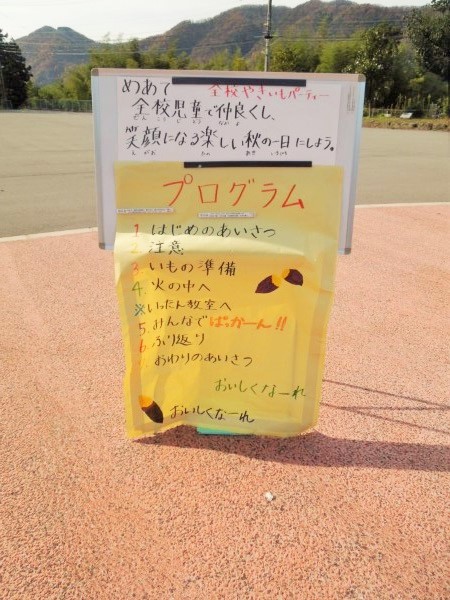 めあて 全校やきいもパーティー
全校児童で仲良くし、
ぜんこうじどう なかよ
笑顔になる楽しい秋の一日にしよう。
えがお たの あき いちにち
プログラム
1. はじめのあいさつ
2. 注意
3. いもの準備
4. 火の中へ
※いったん教室へ
5. みんなでぱっかーん!!
6. ふり返り
7. おわりのあいさつ
おいしくなーれ
おいしくなーれ